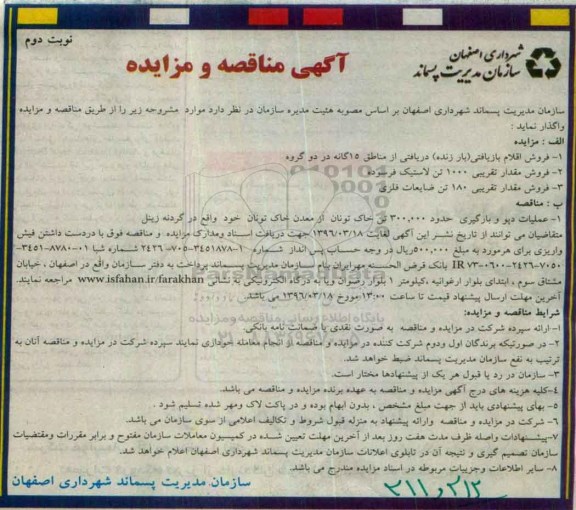 نوبت دوم
شهرداری اصفهان
سازمان مدیریت پسماند
آگهی مناقصه و مزایده
سازمان مدیریت پسماند شهرداری اصفهان بر اساس مصوبه هئیت مدیره سازمان در نظر دارد موارد مشروحه زیر را از طریق مناقصه و مزایده
واگذار نماید :
الف : مزایده
۱- فروش اقلام بازیافتی(بار زنده) دریافتی از مناطق ۱۵گانه در دو گروه
۲- فروش مقدار تقریبی ۱۰۰۰ تن لاستیک فرسوده
۳- فروش مقدار تقریبی ۱۸۰ تن ضایعات فلزی
ب : مناقصه
۱- عملیات دپو و بارگیری حدود ۳۰۰,۰۰۰ تن خاک تونان از معدن خاک تونان خود واقع در گردنه زینل
متقاضیان می توانند از تاریخ نشر این آگهی لغایت ۱۳۹۶/۰۳/۱۸ جهت دریافت اسناد ومدارک مزایده و مناقصه فوق با دردست داشتن فیش
واریزی برای هرمورد به مبلغ ۵۰۰,۰۰۰ریال در وجه حساب پس انداز شماره ۱-۳۴۵۱۸۷۸-۷۰۵-۲۴۲۶ شماره شبا ۰۱-۸۷۸۰-۳۴۵۱-
۷۰۵۰-۲۴۲۶-۰۶۰۰-۷۳ IR بانک قرض الحسنه مهرایران بنام سازمان مدیریت پسماند پرداخت به دفتر سازمان واقع در اصفهان ، خیابان
مشتاق سوم ، ابتدای بلوار ارغوانیه ،کیلومتر ۱ بلوار رضوان ویا به درگاه الکترونیکی به نشانی www.isfahan.ir/farakhan مراجعه نمایند.
آخرین مهلت ارسال پیشنهاد قیمت تا ساعت ۱۳:۰۰ مورخ ۱۳۹۶/۰۳/۱۸ می باشد.
شرایط مناقصه و مزایده:
۱- ارائه سپرده شرکت در مزایده و مناقصه به صورت نقدی یا ضمانت نامه بانکی.
۲- در صورتیکه برندگان اول ودوم شرکت کننده در مزایده و مناقصه از انجام معامله خودداری نمایند سپرده شرکت در مزایده و مناقصه آنان به
ترتیب به نفع سازمان مدیریت پسماند ضبط خواهد شد.
۳- سازمان در رد یا قبول هر یک از پیشنهادها مختار است.
۴-کلیه هزینه های درج آگهی مزایده و مناقصه به عهده برنده مزایده و مناقصه می باشد.
۵- بهای پیشنهادی باید از جهت مبلغ مشخص ، بدون ابهام بوده و در پاکت لاک ومهر شده تسلیم شود .
۶- شرکت در مزایده و مناقصه وارائه پیشنهاد به منزله قبول شروط و تکالیف اعلامی از سوی سازمان می باشد.
۷-پیشنهادات واصله ظرف مدت هفت روز بعد از آخرین مهلت تعیین شده در کمیسیون معاملات سازمان مفتوح و برابر مقررات ومقتضیات
سازمان تصمیم گیری و نتیجه آن در تابلوی اعلانات سازمان مدیریت پسماند شهرداری اصفهان اعلام خواهد شد.
۸- سایر اطلاعات وجزییات مربوطه در اسناد مزایده مندرج می باشد.
سازمان مدیریت پسماند شهرداری اصفهان